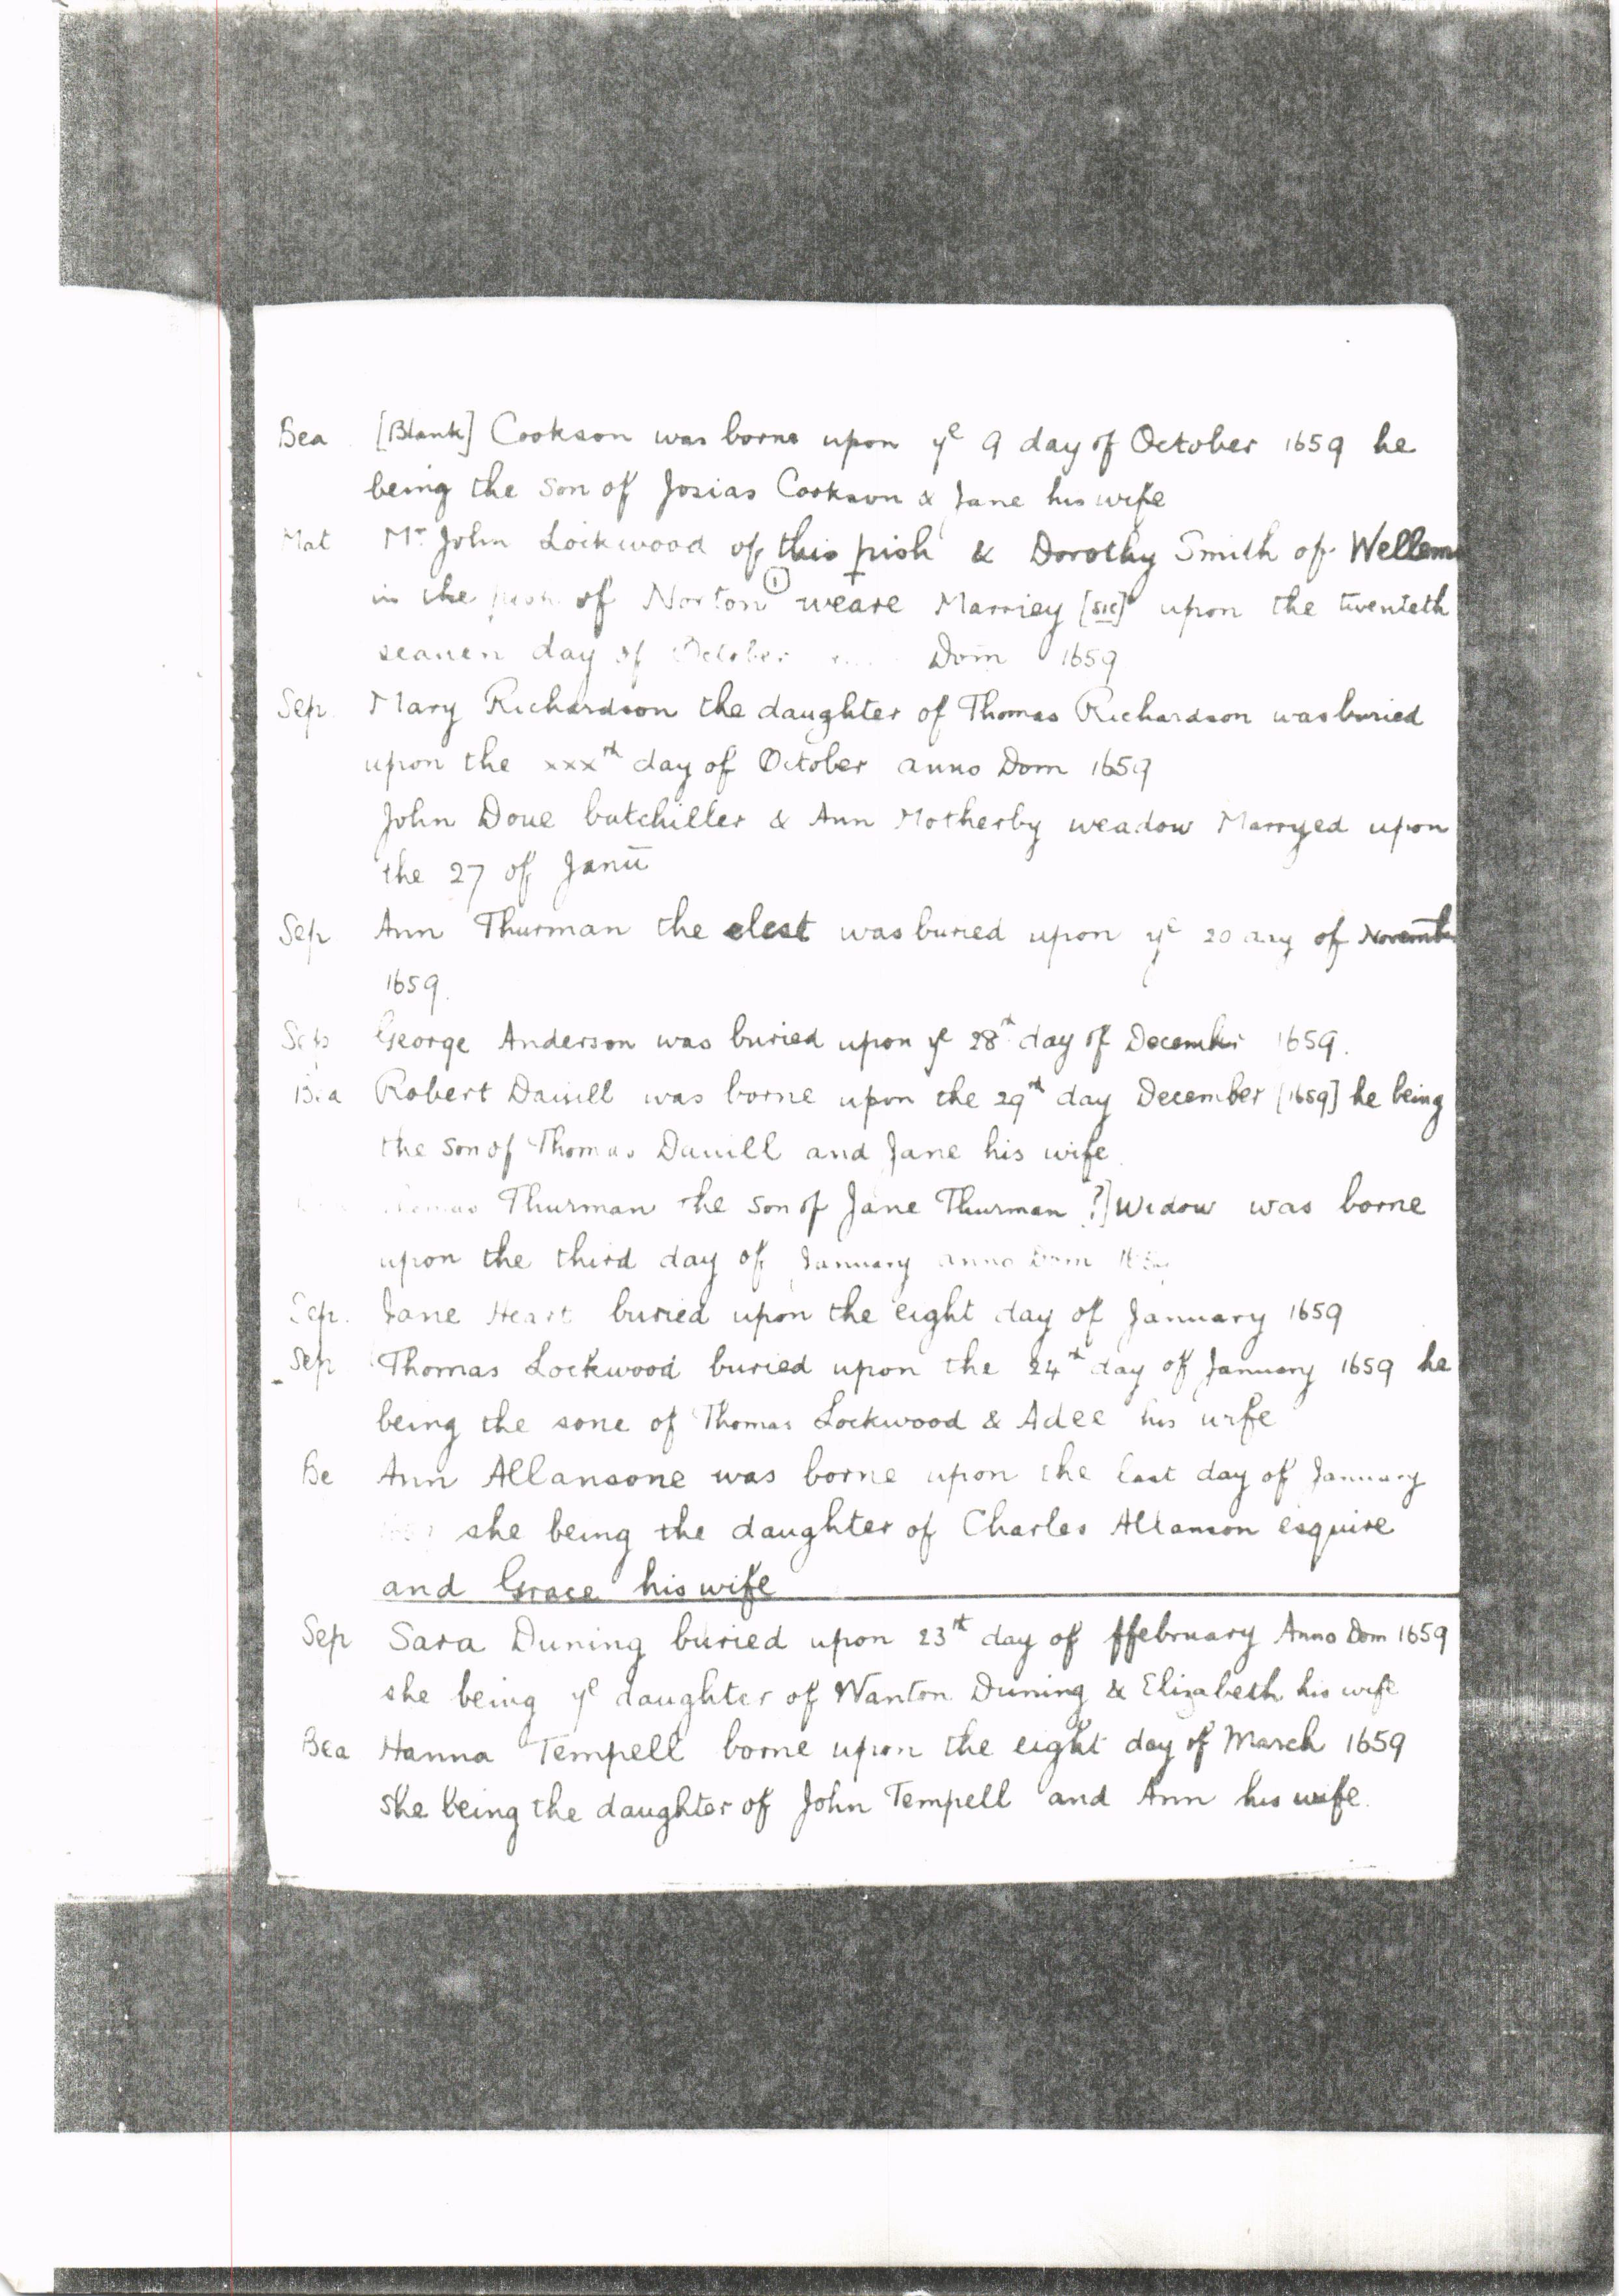 Bea [Blank] Cookson was borne upon yᵉ 9 day of October 1659 he
being the son of Josias Cookson & Jane his wife
Mat Mr John Lockwood of this pish & Dorothy Smith of Wellem
in the pish of Norton ① weare Marriey [sic] upon the twenteth
seauen day of October Dom 1659
Sep Mary Richardson the daughter of Thomas Richardson was buried
upon the xxxᵗʰ day of October anno Dom 1659
John Doue batchiller & Ann Motherby weadow Marryed upon
the 27 of Janū
Sep Ann Thurman the elest was buried upon yᵉ 20 day of Novemb
1659.
Sep George Anderson was buried upon yᵉ 28ᵗʰ day of December 1659.
Bea Robert Dauill was borne upon the 29ᵗʰ day December [1659] he being
the son of Thomas Dauill and Jane his wife
Thomas Thurman the son of Jane Thurman ?] Widow was borne
upon the third day of January anno Dom 1659
Sep. Jane Heart buried upon the eight day of January 1659
Sep Thomas Lockwood buried upon the 24ᵗʰ day of January 1659 he
being the sone of Thomas Lockwood & Adee his wife
Be Ann Allansone was borne upon the last day of January
she being the daughter of Charles Allanson esquire
and Grace his wife
Sep Sara Duning buried upon 23ᵗʰ day of ffebruary Anno Dom 1659
she being yᵉ daughter of Wanton Duning & Elizabeth his wife
Bea Hanna Tempell borne upon the eight day of March 1659
she being the daughter of John Tempell and Ann his wife.